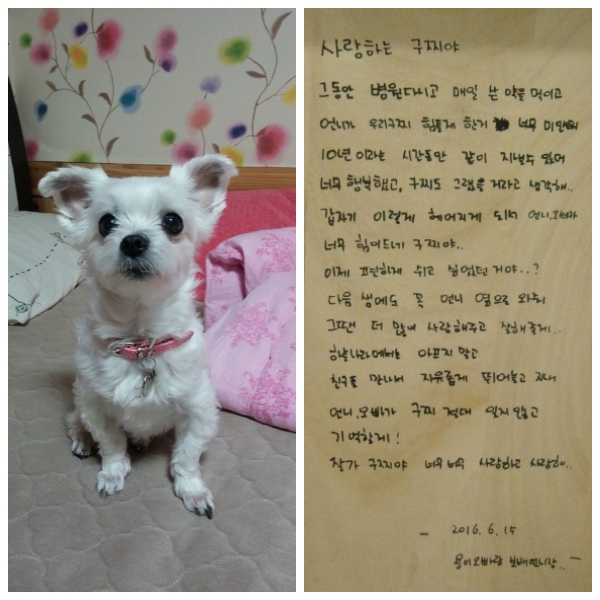 사랑하는 구찌야
그동안 병원다니고 매일 쓴 약을 먹이고
언니가 우리구찌 힘들게 한거 너무 미안해
10년이라는 시간동안 같이 지낼수 있어
너무 행복했고, 구찌도 그랬을 거라고 생각해..
갑자기 이렇게 헤어지게 되니 언니,오빠가
너무 힘이드네 구찌야..
이제 편안하게 쉬고 싶었던거야..?
다음 생에도 꼭 언니 옆으로 와줘
그땐 더 많이 사랑해주고 잘해줄게..
하늘나라에서는 아프지 말고
친구들 만나서 자유롭게 뛰어놀고
언니,오빠가 구찌 절대 잊지 않고
기억할게!
잘가 구찌야 너무너무 사랑하고 사랑해..
- 2016. 6. 15
용이오빠랑 보배언니가.. -